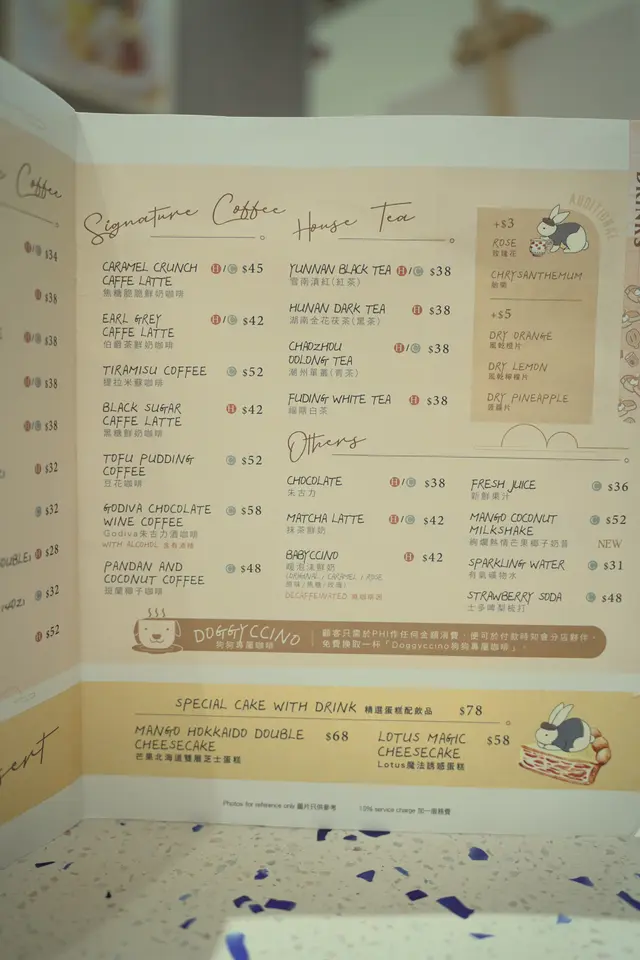 Coffee
H/C $34
H $38
H/C $38
H/C $38
H/C $38
H $32
C $32
H $28
C $32
H $52
Signature Coffee
CARAMEL CRUNCH H/C $45
CAFFE LATTE
焦糖脆脆鮮奶咖啡
EARL GREY H/C $42
CAFFE LATTE
伯爵茶鮮奶咖啡
TIRAMISU COFFEE C $52
提拉米蘇咖啡
BLACK SUGAR H $42
CAFFE LATTE
黑糖鮮奶咖啡
TOFU PUDDING C $52
COFFEE
豆花咖啡
GODIVA CHOCOLATE C $58
WINE COFFEE
Godiva朱古力酒咖啡
WITH ALCOHOL 含有酒精
PANDAN AND C $48
COCONUT COFFEE
斑蘭椰子咖啡
House Tea
YUNNAN BLACK TEA H/C $38
雲南滇紅(紅茶)
HUNAN DARK TEA H $38
湖南金花茯茶(黑茶)
CHAOZHOU H/C $38
OOLONG TEA
潮州單叢(青茶)
FUDING WHITE TEA H $38
福鼎白茶
ADDITIONAL
+$3
ROSE
玫瑰花
CHRYSANTHEMUM
胎菊
+$5
DRY ORANGE
風乾橙片
DRY LEMON
風乾檸檬片
DRY PINEAPPLE
菠蘿片
Others
CHOCOLATE H/C $38
朱古力
MATCHA LATTE H/C $42
抹茶鮮奶
BABYCCINO H $42
暖泡沫鮮奶
(ORIGINAL / CARAMEL / ROSE
原味/焦糖/玫瑰)
DECAFFEINATED 無咖啡因
FRESH JUICE C $36
新鮮果汁
MANGO COCONUT C $52
MILKSHAKE
絢爛熱情芒果椰子奶昔 NEW
SPARKLING WATER C $31
有氣礦物水
STRAWBERRY SODA C $48
士多啤梨梳打
DOGGYCCINO
狗狗專屬咖啡
顧客只需於PHI作任何金額消費，便可於付款時知會分店夥伴，
免費換取一杯「Doggyccino狗狗專屬咖啡」。
SPECIAL CAKE WITH DRINK 精選蛋糕配飲品 $78
MANGO HOKKAIDO DOUBLE $68
CHEESECAKE
芒果北海道雙層芝士蛋糕
LOTUS MAGIC $58
CHEESECAKE
Lotus魔法誘惑蛋糕
Photos for reference only 圖片只供參考
10% service charge 加一服務費